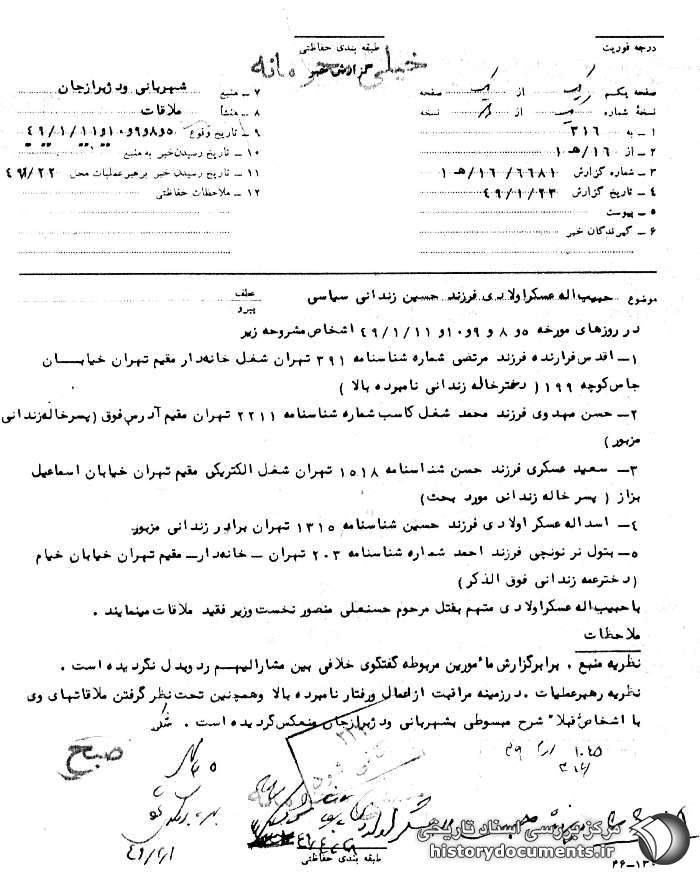 درجه فوریت
طبقه بندی حفاظتی
خیلی محرمانه
گزارش خبر
صفحه یکم یک از یک صفحه
نسخه شماره از نسخه
۱ ـ به ۳۱۶
۲ ـ از ۱۶/هـ ۱
۳ ـ شماره گزارش ۶۶۸۱/ ۱۶/هـ ۱
۴ ـ تاریخ گزارش ۴۹/۱/۲۳
۵ ـ پیوست
۶ ـ گیرندگان خبر
۷ ـ منبع شهربانی ودژبرازجان
۸ ـ منشأ ملاقات
۹ ـ تاریخ وقوع ۵و۸و۹و۱۰و۴۹/۱/۱۱
۱۰ ـ تاریخ رسیدن خبر به منبع
۱۱ ـ تاریخ رسیدن خبر برهبر عملیات محل ۴۹/۱/۲۲
۱۲ ـ ملاحظات حفاظتی
موضوع حبیب اله عسکراولادی فرزند حسین زندانی سیاسی
عطف
پیرو
در روزهای مورخه ۵و ۸ و ۹و۱۰و ۴۹/۱/۱۱ اشخاص مشروحه زیر
۱ـ اقدس فرارنده فرزند مرتضی شماره شناسنامه ۳۹۱ تهران شغل خانه دار مقیم تهران خیابــان
جاس کوچه ۱۹۹ ( دختر خاله زندانی نامبرده بالا )
۲ـ حسن مهدوی فرزند محمد شغل کاسب شماره شناسنامه ۲۲۱۱ تهران مقیم آدرس فوق (پسرخاله زندانی
مزبور )
۳ـ سعید عسکری فرزند حسن شناسنامه ۱۵۱۸ تهران شغل الکتریکی مقیم تهران خیابان اسماعیل
بزاز ( پسر خاله زندانی مورد بحث)
۴ـ اسداله عسکراولادی فرزند حسین شناسنامه ۱۳۱۵ تهران برادر زندانی مزبور
۵ـ بتول نرنونچی فرزند احمد شماره شناسنامه ۲۰۳ تهران ـ خانه دار ـ مقیم تهران خیابان خیام
(دختر عمه زندانی فوق الذکر )
با حبیب اله عسکراولادی متهم بقتل مرحوم حسنعلی منصور نخست وزیر فقید ملاقات مینمایند .
ملاحظات
نظریه منبع . برابر گزارش مأمورین مربوطه گفتگوی خلافی بین مشارالیهم رد وبدل نگردیده است .
نظریه رهبر عملیات . در زمینه مراقبت از اعمال ورفتار نامبرده بالا وهمچنین تحت نظر گرفتن ملاقاتهای وی
با اشخاص قبلا" شرح مبسوطی بشهربانی ودژبرازجان منعکس گردیده است .
صبح
طبقه بندی حفاظتی
مرکز بررسی اسناد تاریخی
historydocuments.ir